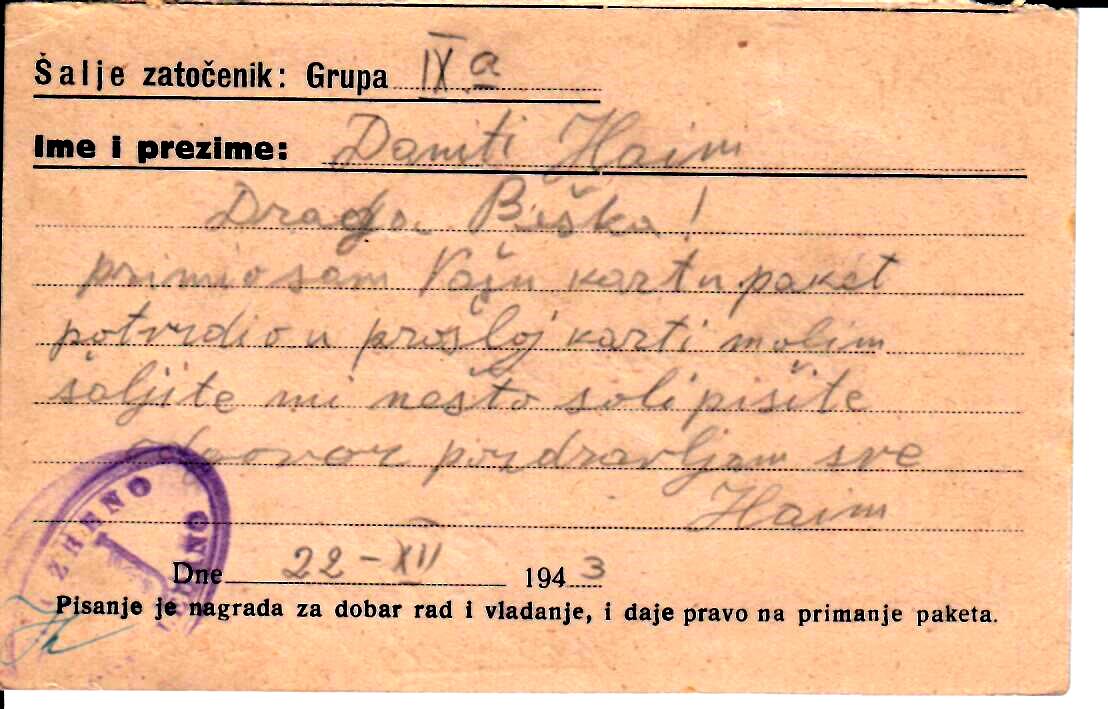 Šalje zatočenik: Grupa IX a
Ime i prezime: Daniti Haim
Draga Biška!
primio sam Vašu kartu paket
potvrdio u prošloj karti molim
šaljite mi nešto soli pišite
odgovor pozdravljam sve
Haim
Dne 22-XII 1943
Pisanje je nagrada za dobar rad i vladanje, i daje pravo na primanje paketa.